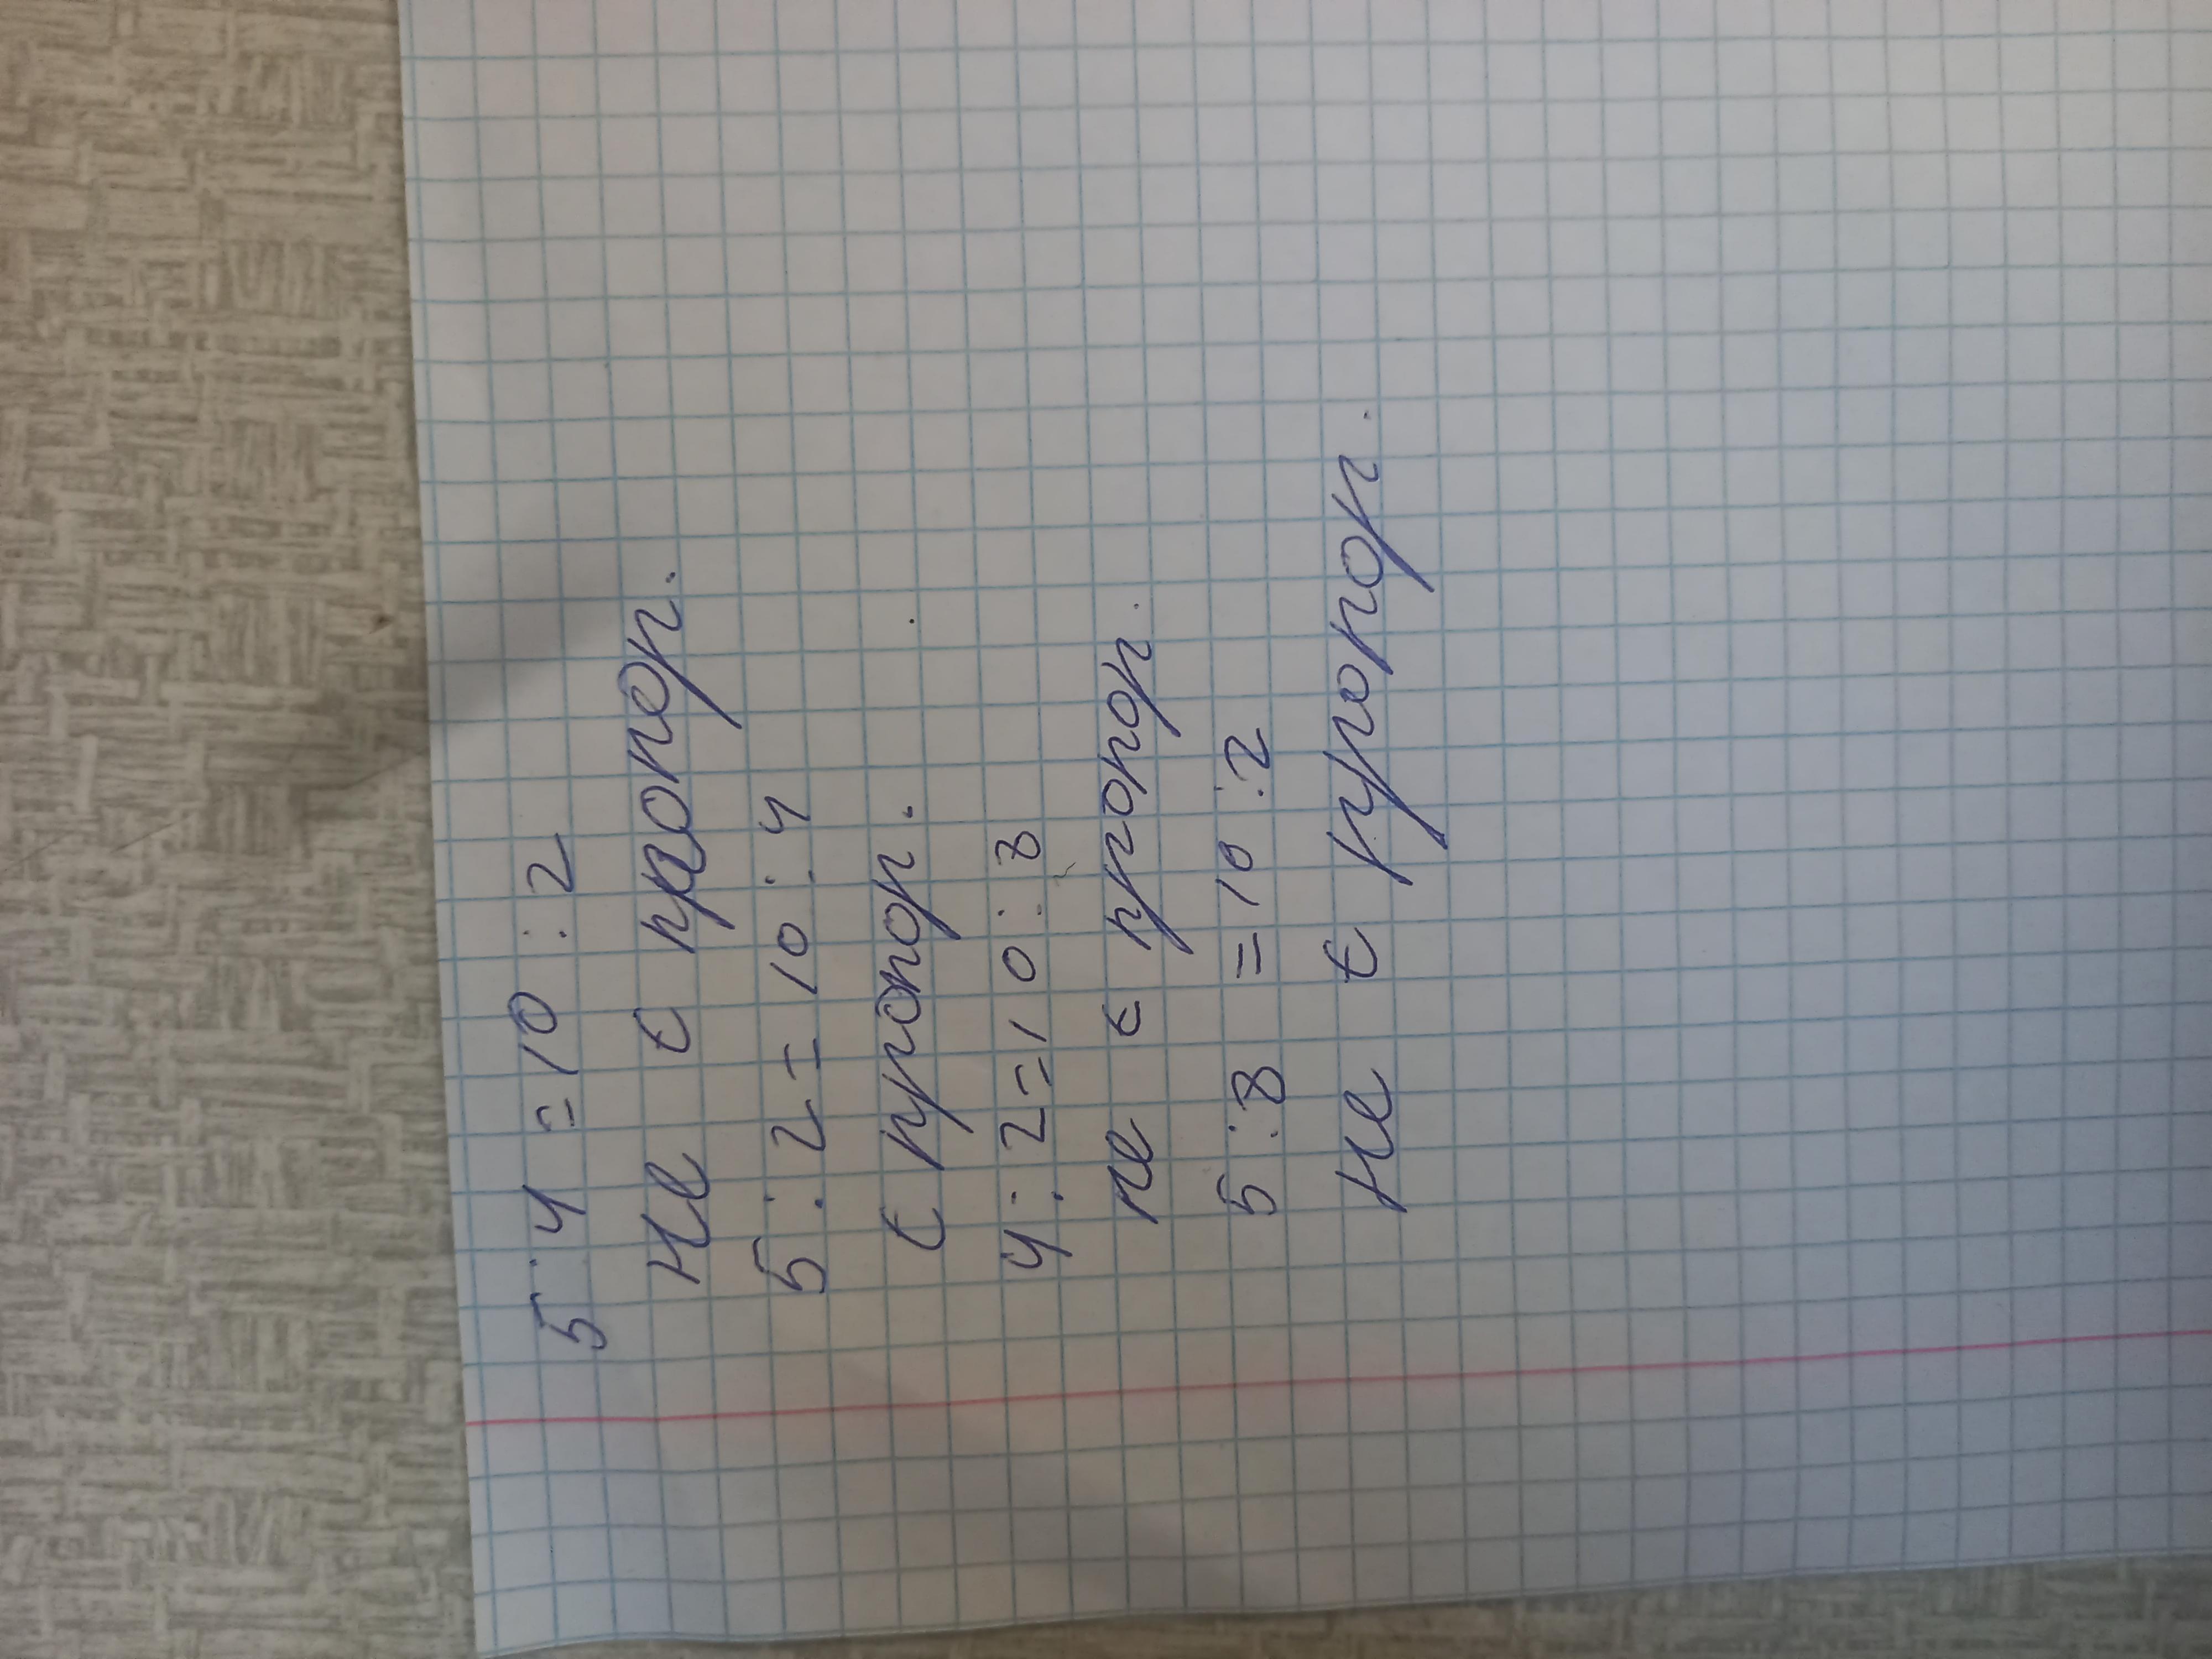 5:4=10:2
не є пропор.
5:2=10:4
є пропор.
4:2=10:8
не є пропор.
5:8=10:2
не є пропор.